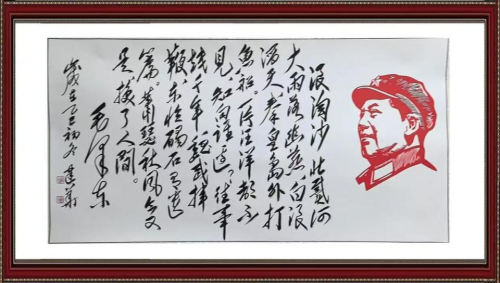 浪淘沙 北戴河
大雨落幽燕 白浪
滔天 秦皇岛外打
鱼船。一片汪洋都不
见,知向谁边?往事
越千年,魏武挥
鞭,东临碣石有遗
篇。萧瑟秋风今又
是,换了人间。
毛泽东
岁在乙巳初冬